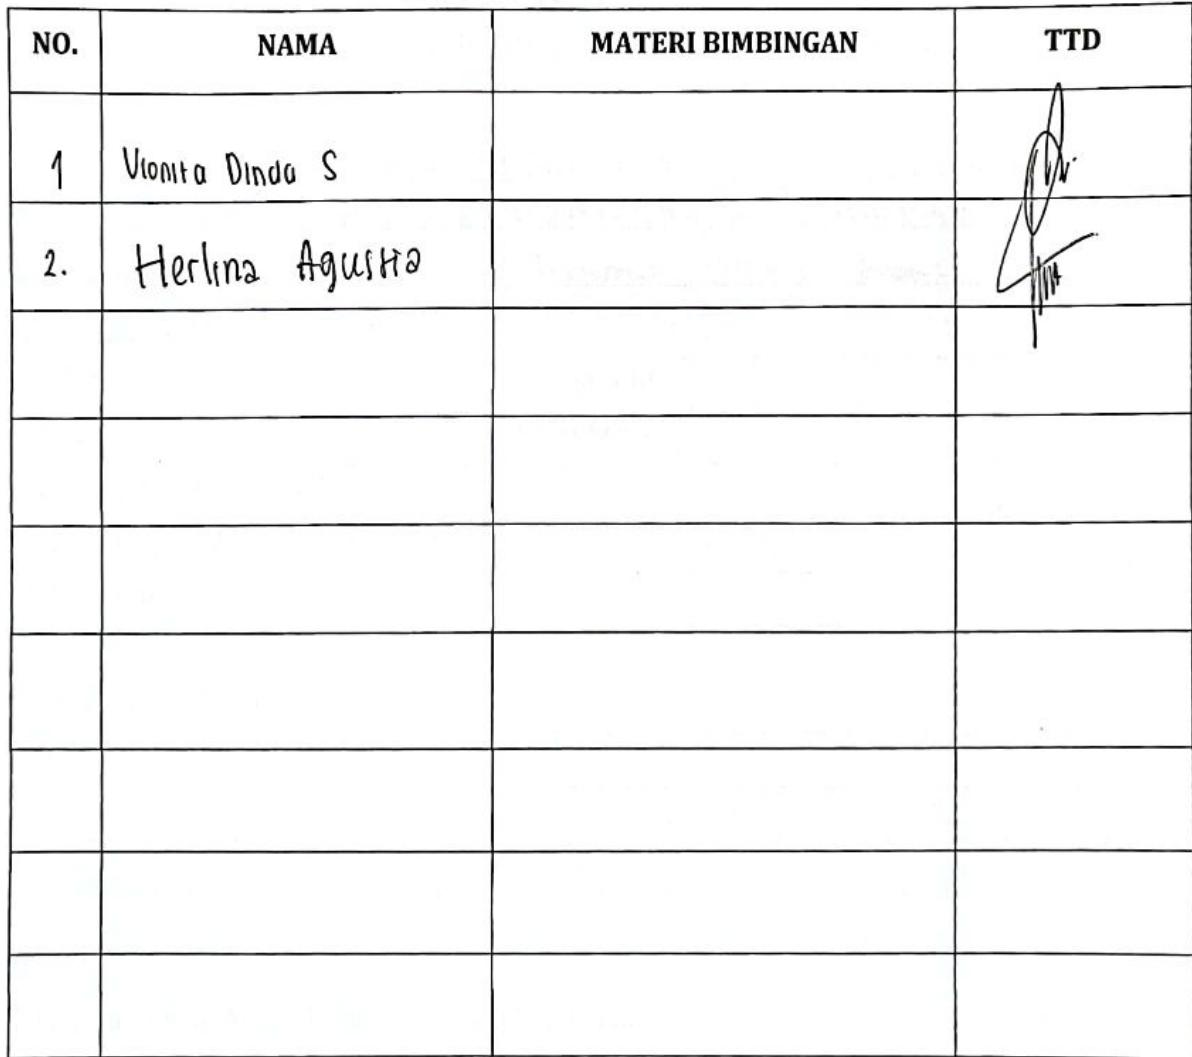 NO. NAMA MATERI BIMBINGAN TTD
1 Vionita Dinda S
2. Herlina Agustia